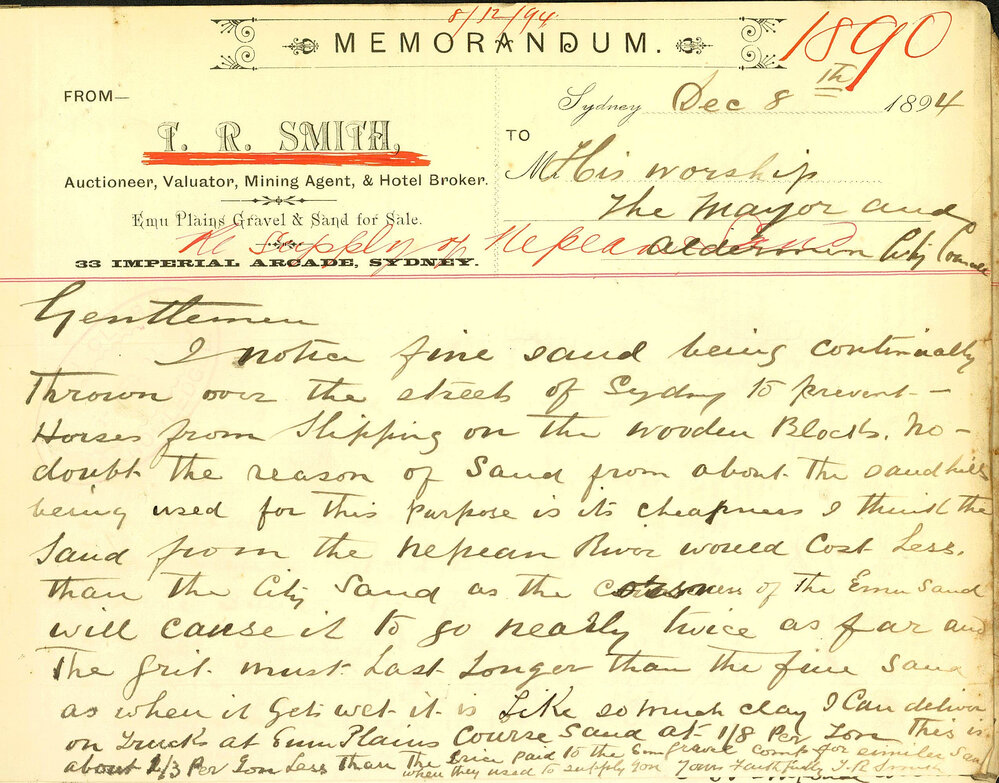 8/12/94
1890
MEMORANDUM.
FROM—
T. R. SMITH,
Auctioneer, Valuator, Mining Agent, & Hotel Broker.
Emu Plains Gravel & Sand for Sale.
33 IMPERIAL ARCADE, SYDNEY.
Sydney Dec 8th 1894
TO
M His worship
The Mayor and
Aldermen City Council
Re Supply of Nepean Sand
Gentlemen
I notice fine sand being continually
Thrown over the streets of Sydney to prevent-
Horses from Slipping on the wooden Blocks. No-
doubt the reason of Sand from about the sandhills
being used for this purpose is its cheapness I think the
Sand from the Nepean River would Cost Less.
than the City Sand as the coarseness of the Emu Sand
will cause it to go nearly twice as far and
The grit must Last Longer than the fine Sand
as when it Gets wet it is Like so much clay I Can deliver
on Trucks at Emu Plains Course Sand at 1/8 Per Ton This is
about 2/3 Per Ton Less than the Price paid to the Emu gravel Comp for similar Sand
when they used to supply you Yours Faithfully T. R. Smith